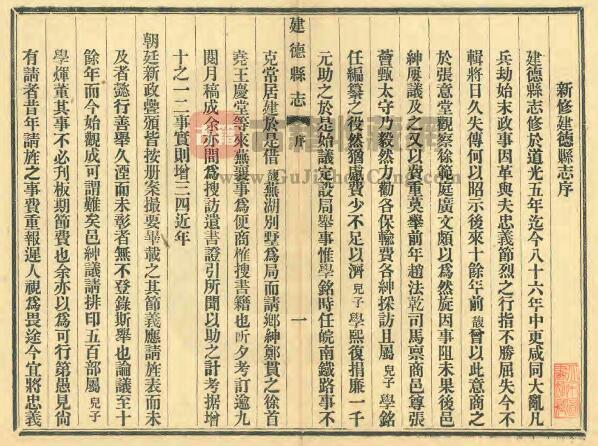 新修建德縣志序
建德縣志修於道光五年迄今八十六年中更咸同大亂凡
兵劫始末政事因革與夫忠義節烈之行指不勝屈失今不
輯將日久失傳何以昭示後來十餘年前馥曾以此意商之
於張意堂觀察徐範庭廣文頗以爲然旋因事阻未果後邑
紳屢議及之又以費重莫舉前年趙法乾司馬稟商邑尊張
薈甄太守乃毅然力勸各保輸費各紳採訪且屬兒子學銘
任編纂之役然猶慮費少不足以濟兒子學熙復捐廉一千
元助之於是始議定設局舉事惟學銘時任皖南鐵路事不
建德縣志 序 一
克常居建於是借馥蕪湖別墅爲局而請鄉紳鄭貫之徐首
堯王慶堂等來蕪襄事爲便商榷搜書籍也昕夕考訂逾九
閱月稿成余間爲搜訪遺書證引所聞以助之計考據增
十之一二事實則增三四近年
朝廷新政頒皆按册案撮要畢載之其節義應請旌表而未
及者懿行善舉久湮而未彰者無不登錄斯舉也論議至十
餘年而今始觀成可謂難矣邑紳議請排印五百部屬兒子
學煇董其事不必刋板期節費也余亦以爲可行第愚見尙
有請者昔年請旌之事費重報遲人視爲畏途今宜將忠義
www.GuJiShouCang.Com